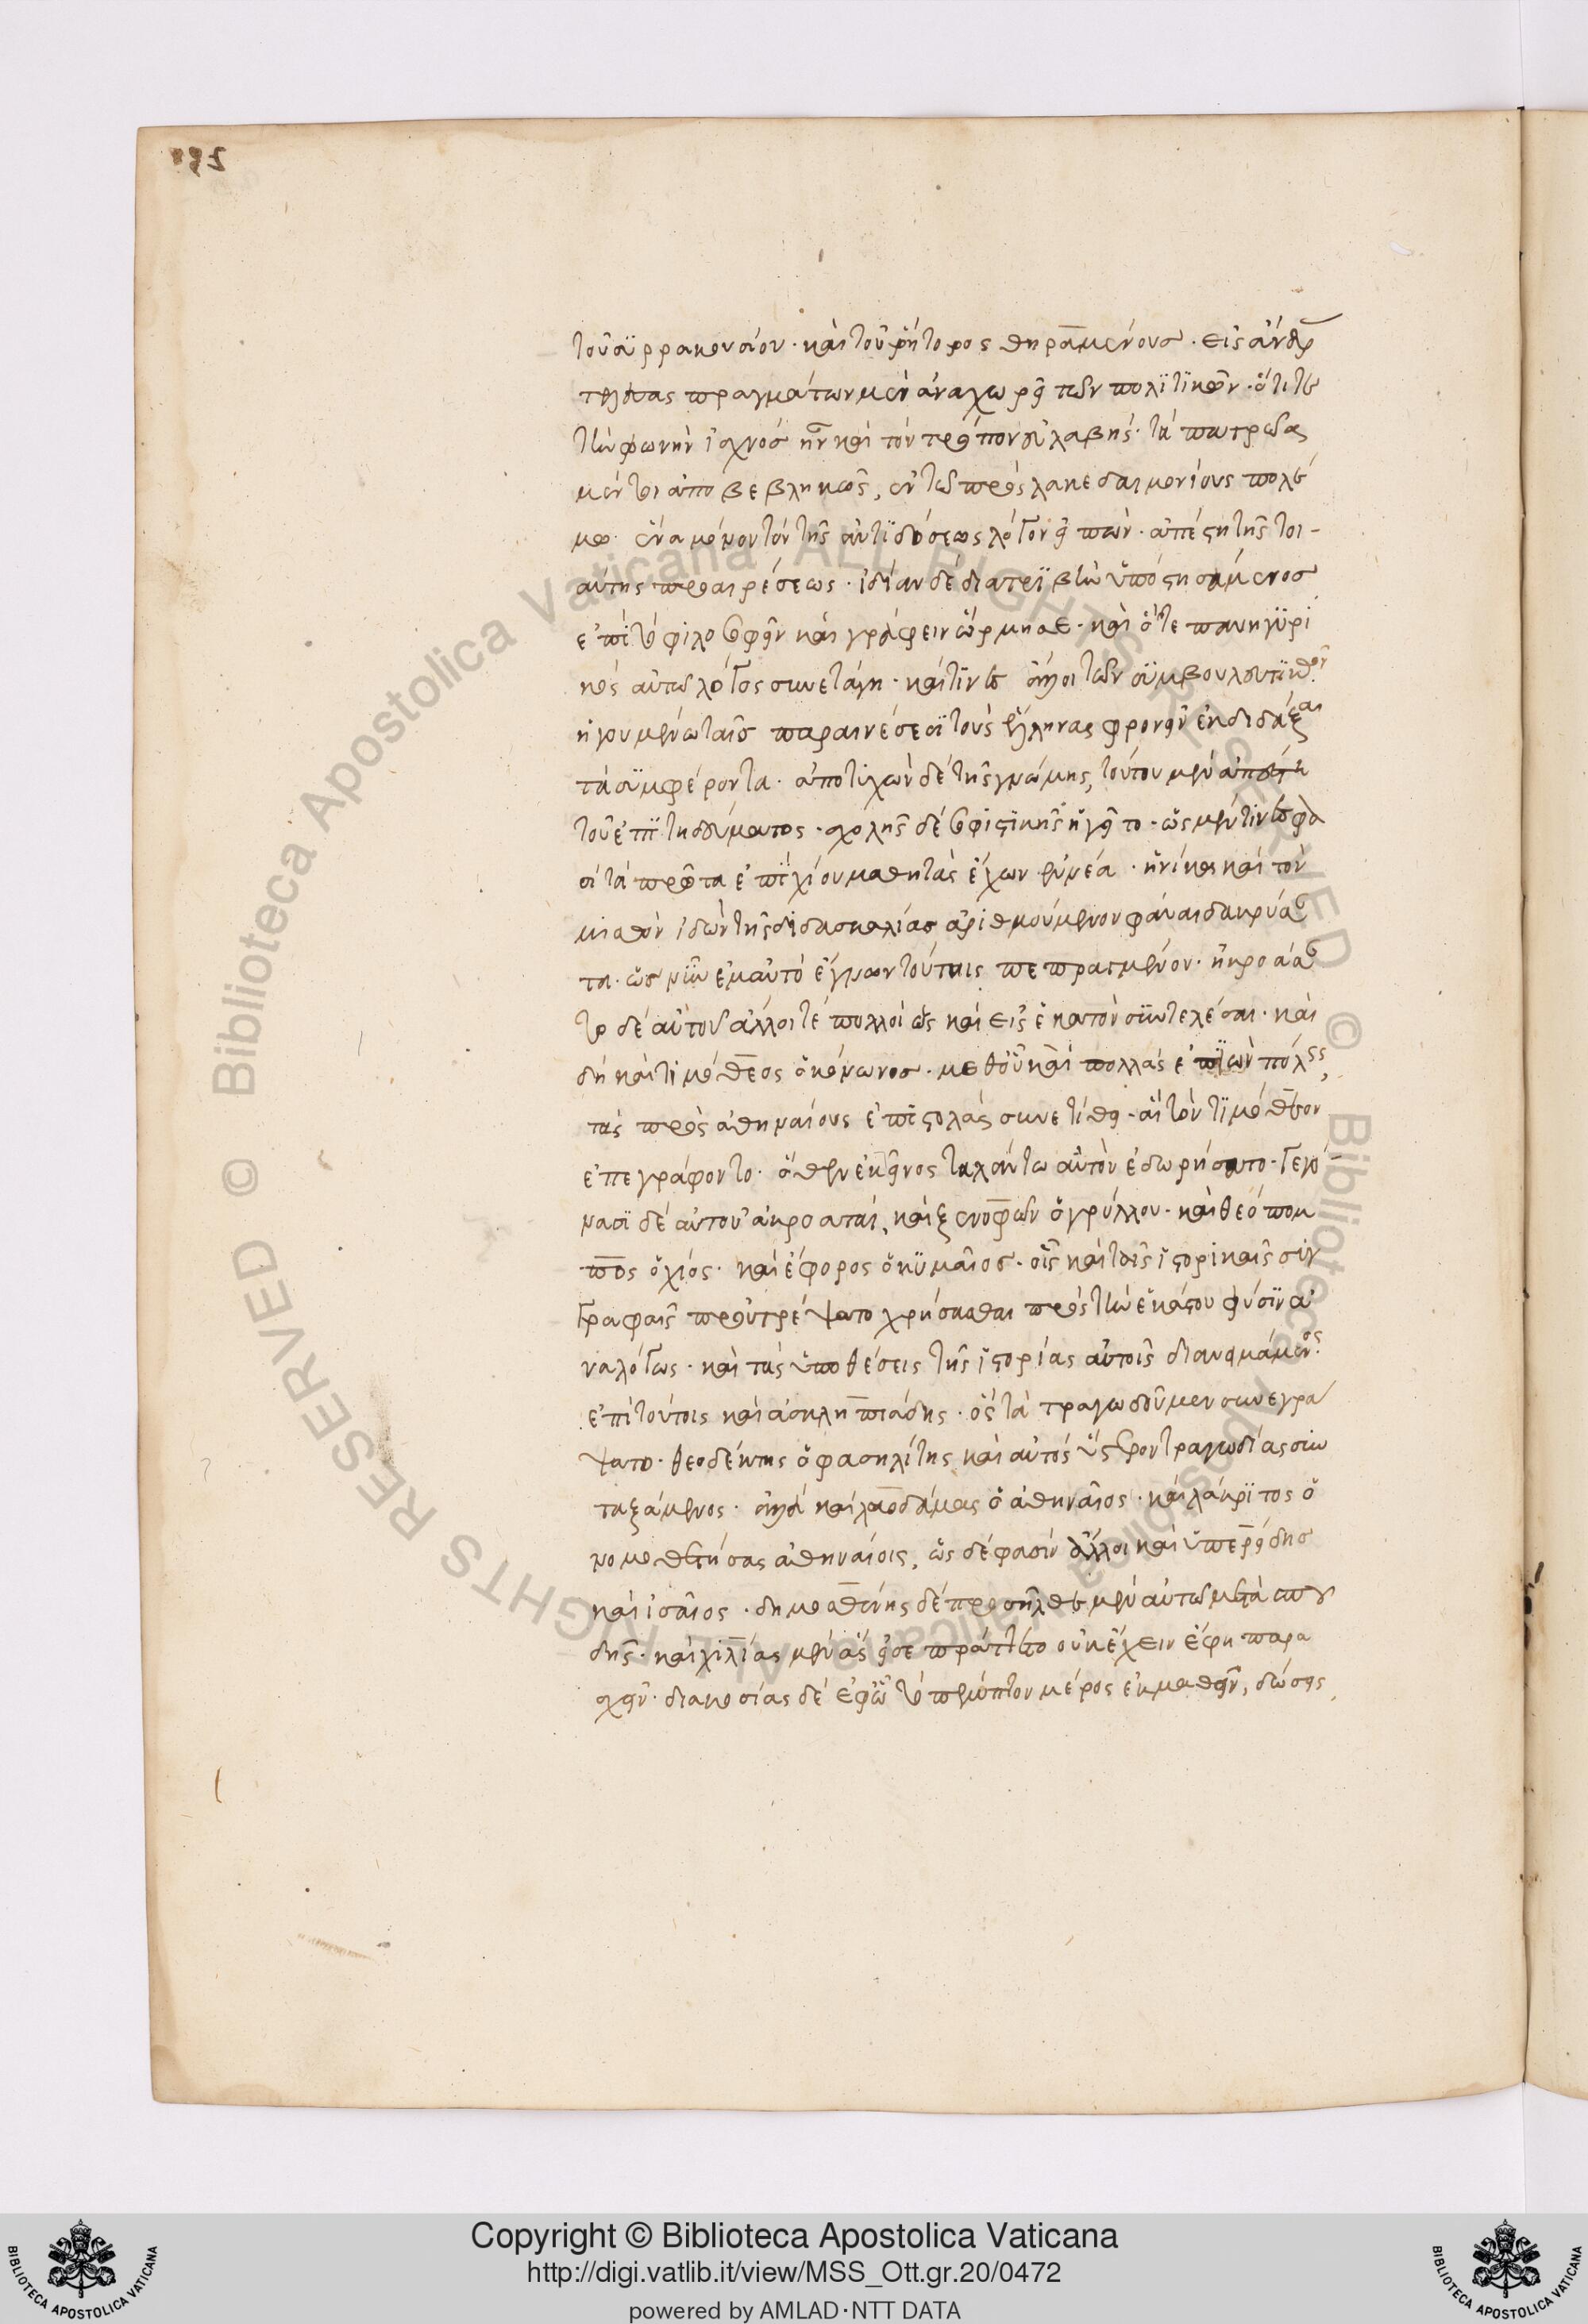 τοῦ συρρακουσίου· καὶ τοῦ ῥήτορος θηραμένους· εἰς ἄνδρ
τελέσας πραγμάτων μὲν ἀνεχώρει τῶν πολιτικῶν· ὅτι τε
τὴν φωνὴν ἰσχνὸς ἦν καὶ τὸν τρόπον εὐλαβής· τὰ πατρῶα
μέντοι ἀποβεβληκὼς, ἐν τῷ πρὸς λακεδαιμονίους πολέ
μῳ· ἕνα μόνον τὸν τῆς ἀντιδόσεως λόγον εἰπών· ἀπέστη τῆς τοι-
αύτης προαιρέσεως· ἰδίαν δὲ διατριβὴν ὑποστησάμενος
ἐπὶ τὸ φιλοσοφεῖν καὶ γράφειν ὥρμησε· καὶ ὅτε πανηγυρι
κὸς αὐτῷ λόγος συνετάγη· καί τινες ἄλλοι τῶν συμβουλευτικῶν
ἡγουμένω ταῖς παραινέσεσι τοὺς ἕλληνας φρονεῖν ἐκδιδάξαι
τὰ συμφέροντα· ἀποτυχὼν δὲ τῆς γνώμης, τούτου μὲν ἀπέστη
τοῦ ἐπιτηδεύματος· σχολῆς δὲ σοφιστικῆς ἡγεῖτο· ὡς μέν τινές φα
σι τὰ πρῶτα ἐπὶ χίου μαθητὰς ἔχων ἐννέα· ἡνίκα καὶ τὸν
μισθὸν ἰδὼν τῆς διδασκαλίας ἀριθμούμενον φάναι δακρύσαν
τα· ὡς νῦν ἐμαυτὸ ἔγνων τούτοις πεπραγμένον· ἠκροάσαν
το δὲ αὐτοῦ ἄλλοι τὲ πολλοὶ ὡς καὶ εἰς ἑκατὸν συντελέσαι· καὶ
δὴ καὶ τιμόθεος ὁ κόνωνος· μεθ οὗ καὶ πολλὰς ἐπϊὼν πόλεις,
τὰς πρὸς ἀθηναίους ἐπιστολὰς συνετίθει· αἳ τὸν τιμόθεον
ἐπεγράφοντο· ὅθεν ἐκεῖνος ταλάντω αὐτὸν ἐδωρήσατο· Γεγό
νασι δὲ αὐτοῦ ἀκροαταὶ, καὶ ξενοφῶν ὁ γρύλλου· καὶ θεόπομ
πος ὁ χίος· καὶ ἔφορος ὁ κυμαῖος· οἷς καὶ ταῖς ἱστορικαῖς συγ
Γραφαῖς προὐτρέψατο χρήσασθαι πρὸς τὴν ἑκάστου φύσιν ἀ
ναλόγως· καὶ τὰς ὑποθέσεις τῆς ἱστορίας αὐτοῖς διανειμάμενος·
ἐπὶ τούτοις καὶ ἀσκληπιάδης· ὃς τὰ τραγωδούμεν συνεγρά
ψατο· θεοδέκτης ὁ φασηλίτης καὶ αὐτὸς ὕστερον τραγωδίας συν
ταξάμενος· ἀλλὰ καὶ λαοδάμας ὁ ἀθηναῖος· καὶ λάκριτος ὁ
νομοθετήσας ἀθηναίοις, ὡς δέ φασὶν ἄλλοι καὶ ὑπερείδης
καὶ ἰσαῖος· δημοσθένης δὲ προσῆλθε μὲν αὐτῷ μετὰ σπου
δῆς· καὶ χιλίας μὲν ἃς εἰσεπράττετο οὐκ ἔχειν ἔφη παρα
σχεῖν· διακοσίας δὲ ἐφ ὧ τὸ πέμπτον μέρος ἐκμαθεῖν, δώσεις,
Copyright © Biblioteca Apostolica Vaticana
http://digi.vatlib.it/view/MSS_Ott.gr.20/0472
powered by AMLAD·NTT DATA
BIBLIOTECA APOSTOLICA VATICANA
BIBLIOTECA APOSTOLICA VATICANA
© Biblioteca Apostolica Vaticana ALL RIGHTS RESERVED
© Biblioteca Apostolica Vaticana ALL RIGHTS RESERVED